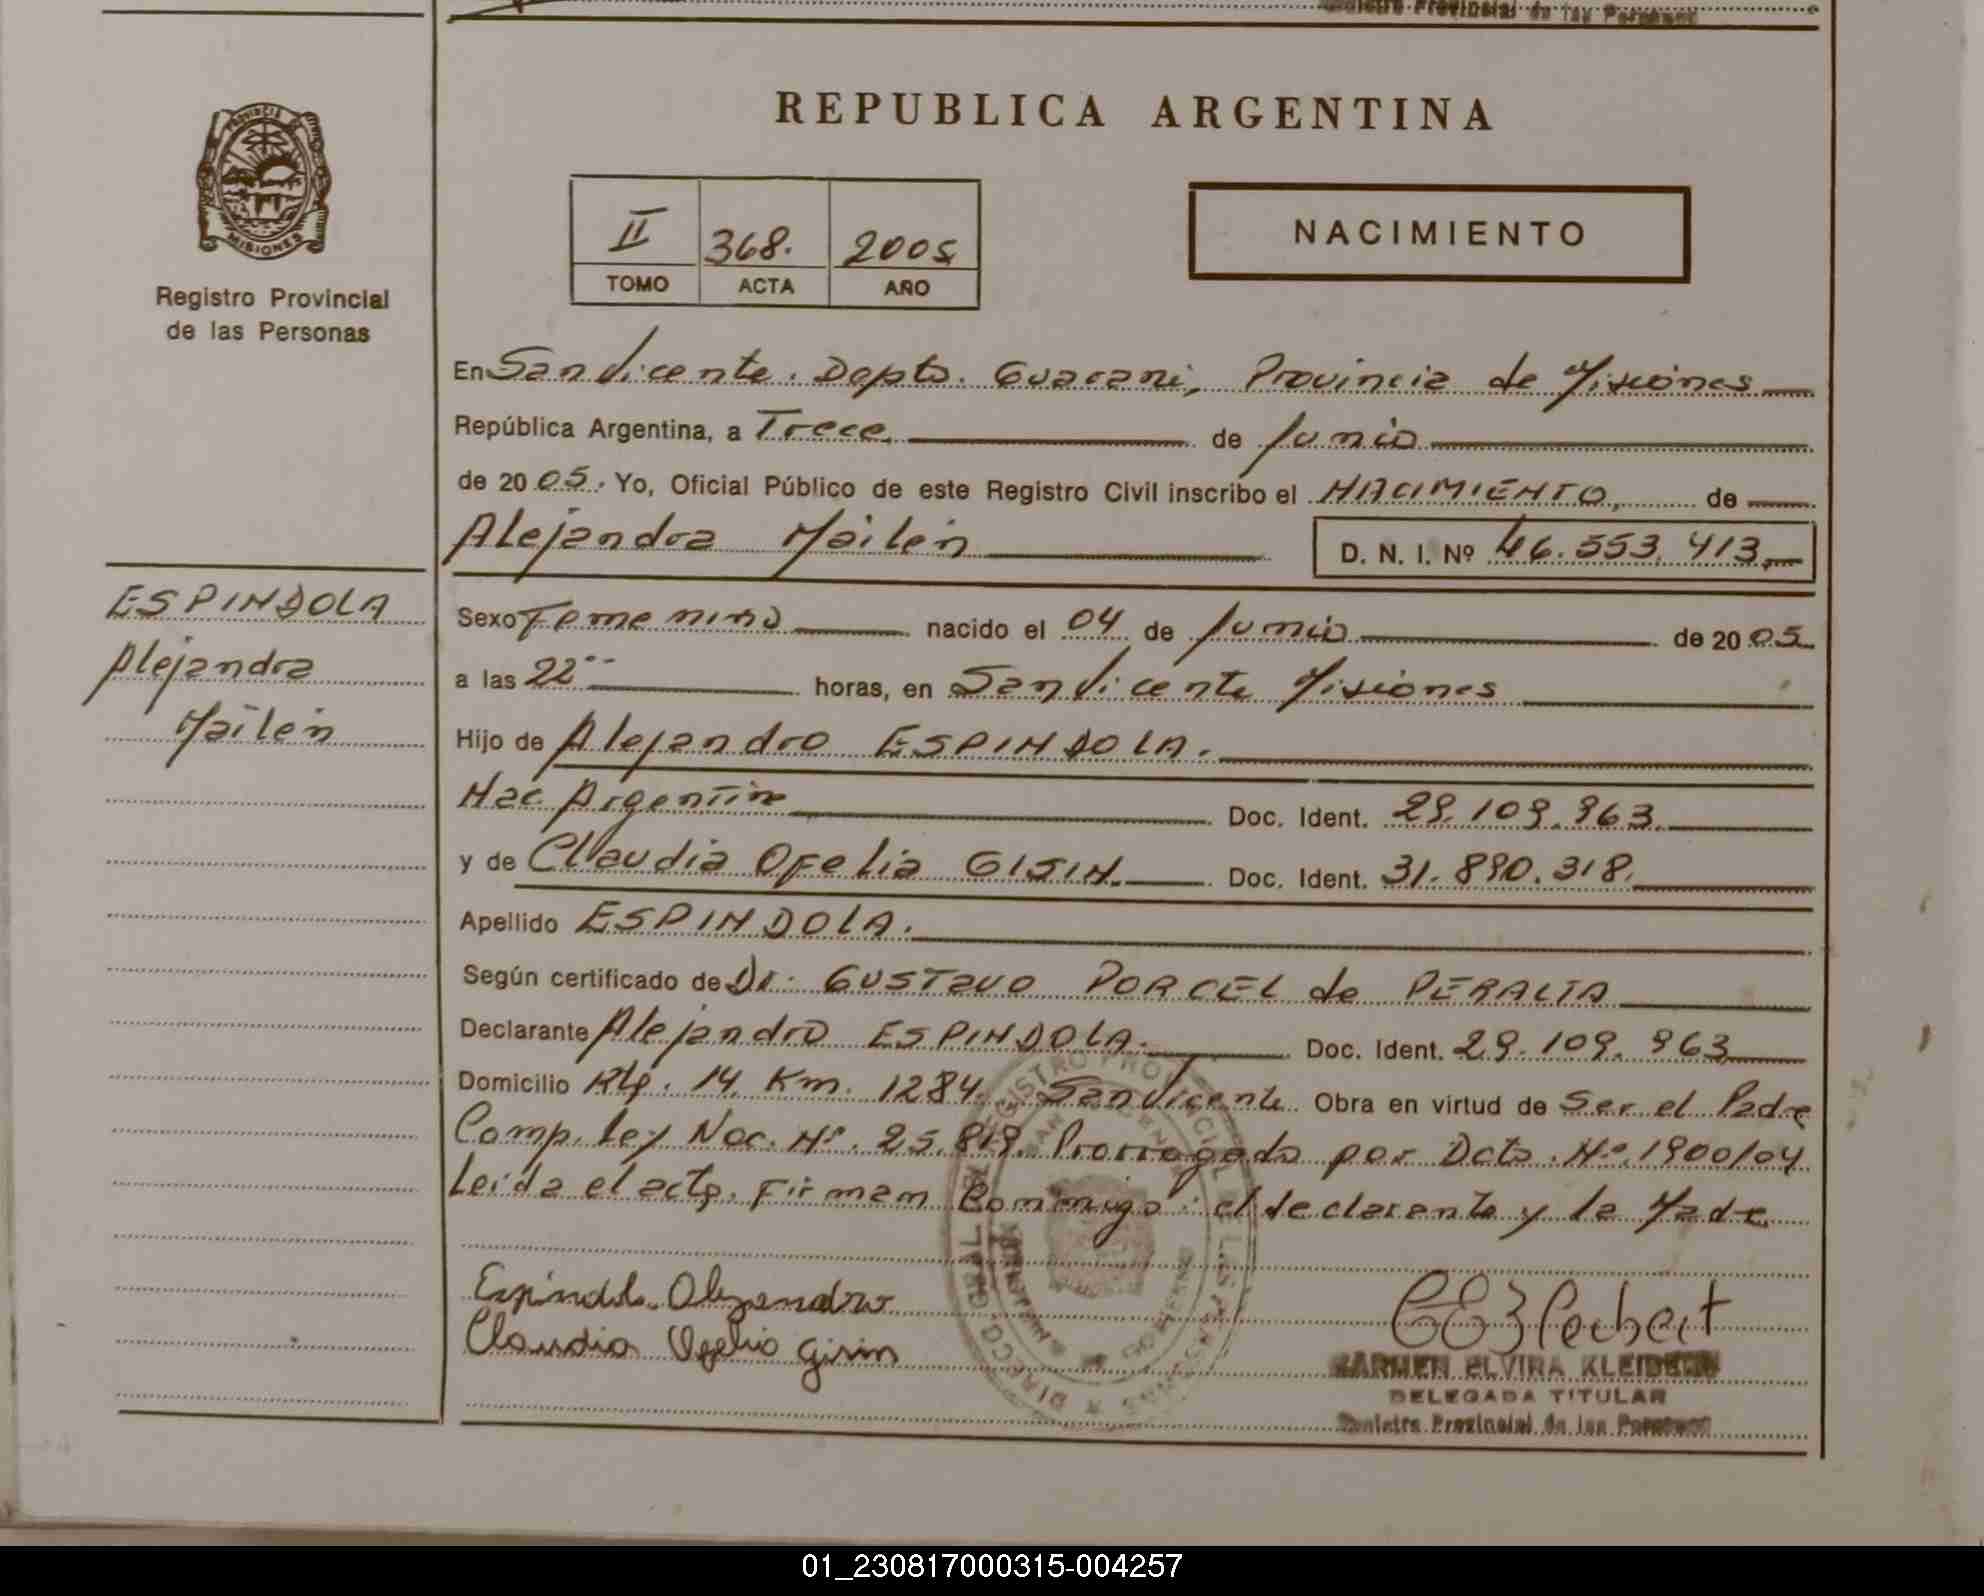 REPUBLICA ARGENTINA
PROVINCIA DE
MISIONES
Registro Provincial
de las Personas
II 368. 2005
TOMO ACTA AÑO
NACIMIENTO
En San Vicente. Depto. Guarani, Provincia de Misiones
República Argentina, a Trece de Junio
de 2005. Yo, Oficial Público de este Registro Civil inscribo el NACIMIENTO, de
Alejandra Mailen D. N. I. Nº 46.553.413
ESPINDOLA
Alejandra
Mailen
Sexo Femenino nacido el 04 de Junio de 2005
a las 22 horas, en San Vicente Misiones
Hijo de Alejandro ESPINDOLA.
Nac. Argentina Doc. Ident. 29.109.963.
y de Claudia Ofelia GISIN. Doc. Ident. 31.890.318.
Apellido ESPINDOLA.
Según certificado de Dr. GUSTAVO PORCEL de PERALTA
Declarante Alejandro ESPINDOLA. Doc. Ident. 29.109.963
Domicilio Rta. 14 Km. 1284. San Vicente Obra en virtud de Ser el Padre
Comp. Ley Nac. Nº. 25.819. Prorrogado por Dcto. Nº. 1900/04
Leída el acta. Firman Conmigo: el declarante y la Madre
Espindola Alejandro
Claudia Ofelia Gisin
CARMEN ELVIRA
DELEGADA TITULAR
Registro Provincial de las Personas
01_230817000315-004257